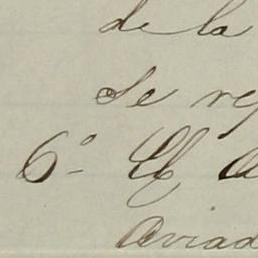 de la
Se re
6º- El a
Aviad